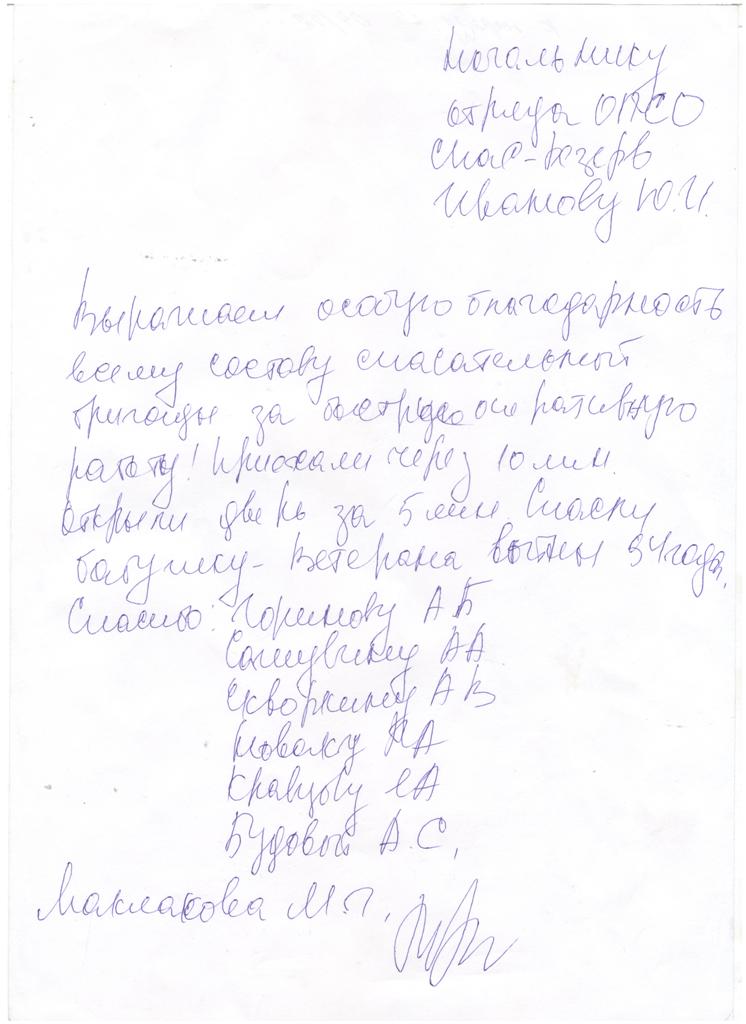 Начальнику
отряда ОПСО
Спас-резерв
Иванову Ю.И.
Выражаем особую благодарность
всему составу спасательный
бригады за быструю оперативную
работу! Приехали через 10 мин.
открыли дверь за 5 мин. Спасли
бабушку - Ветерана войны 94 года.
Спасибо: Горинову А Б
Сошувкину А А
Скворкину А В
Новаку А
Кравцову А
Будовый А.С.
Маклакова М.Г.